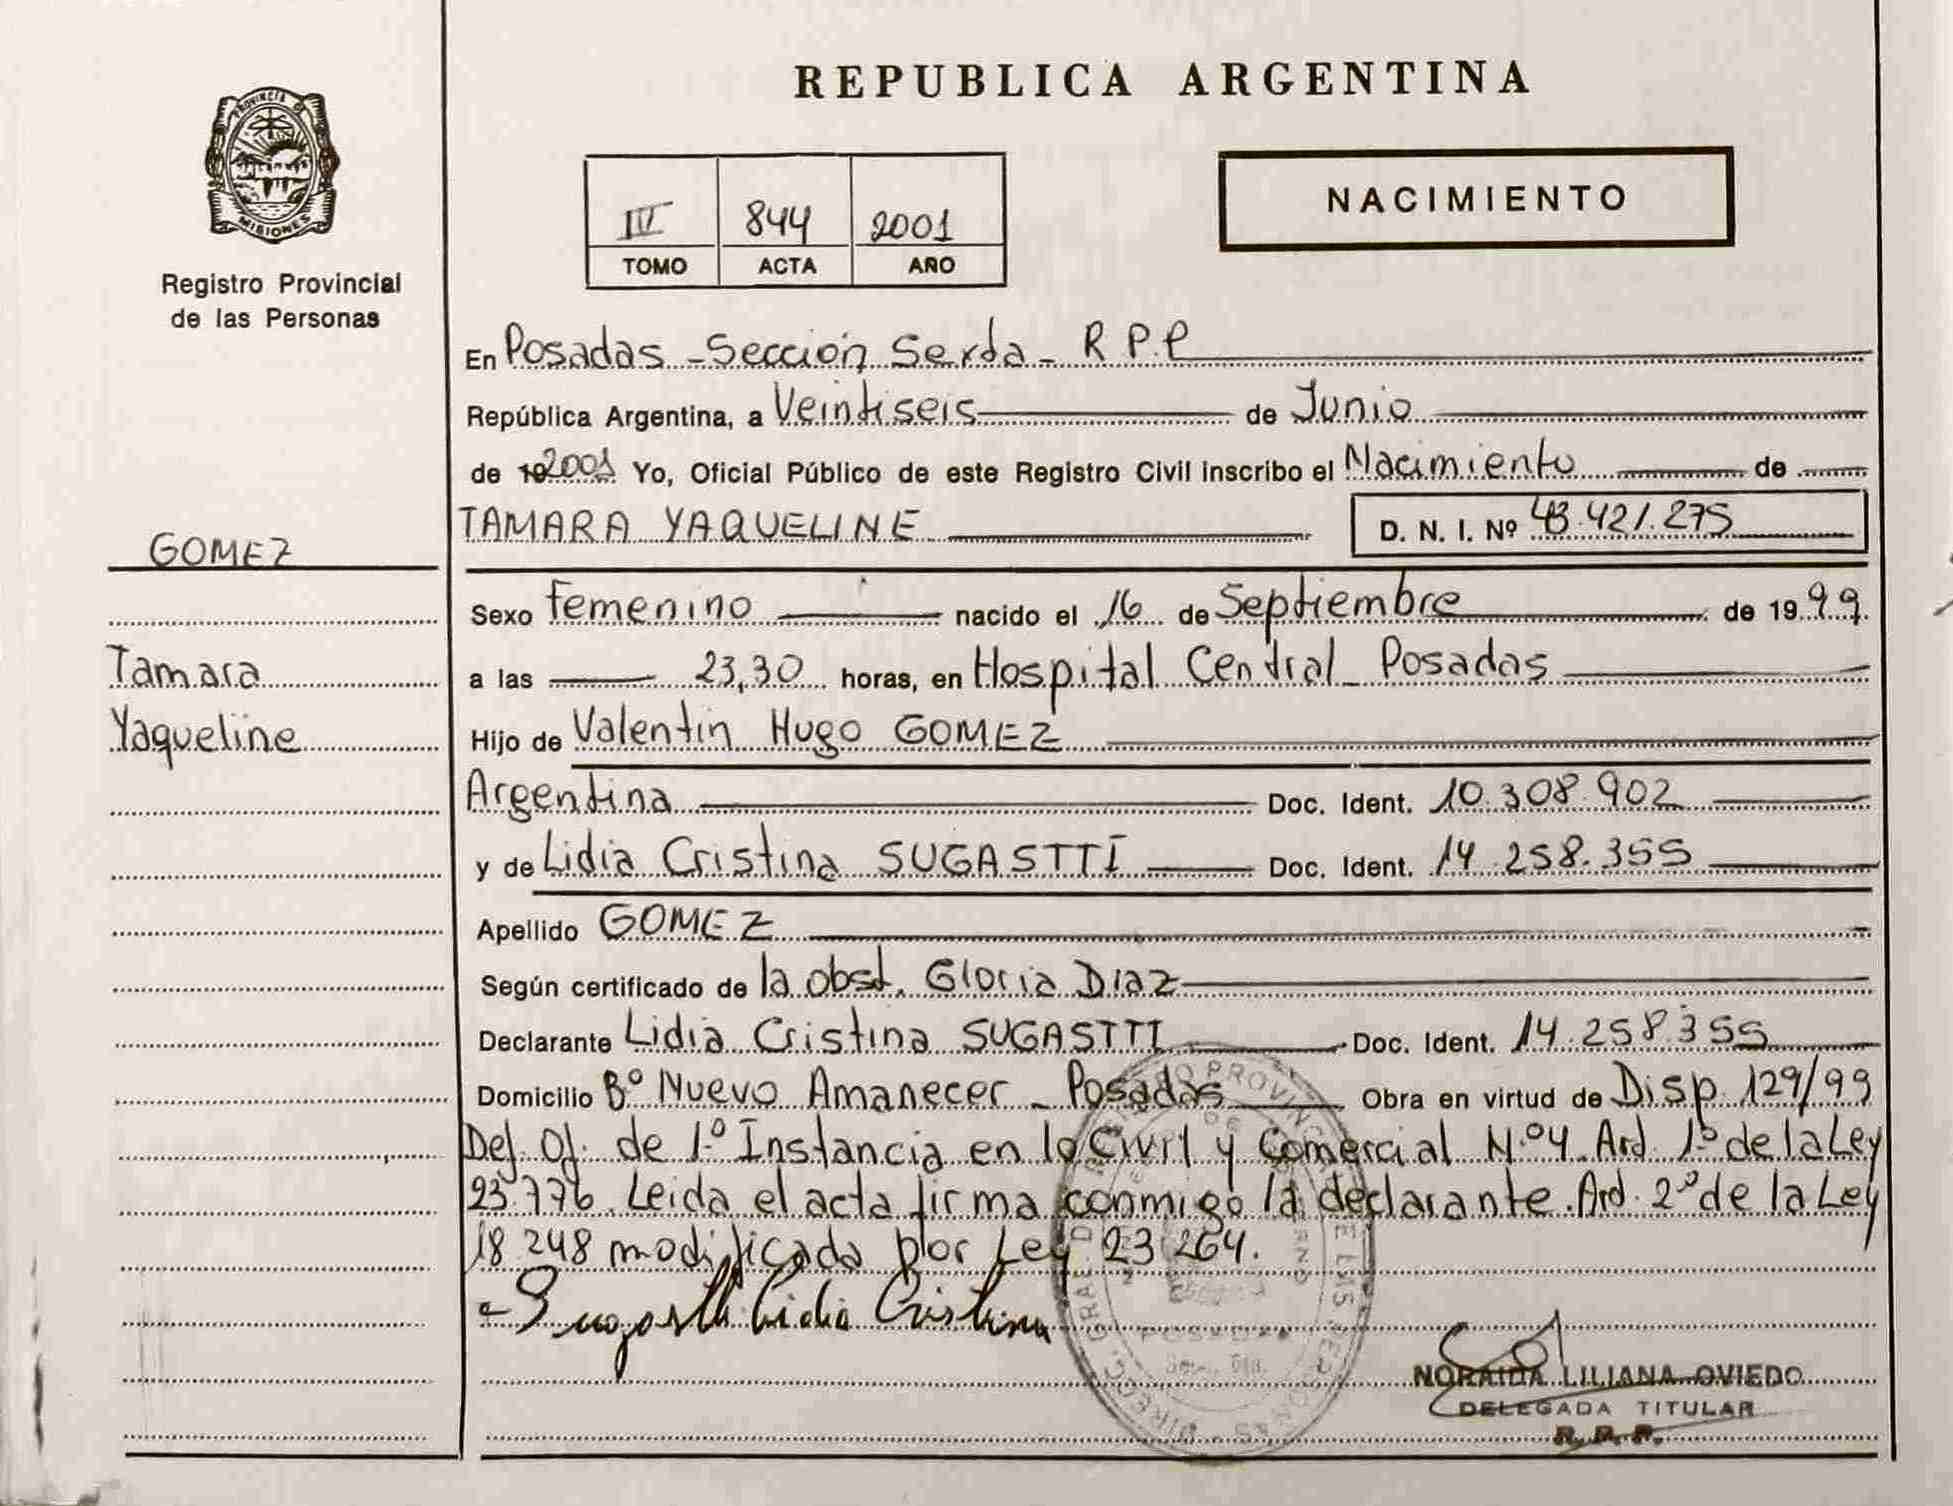 REPUBLICA ARGENTINA
PROVINCIA DE
MISIONES
Registro Provincial
de las Personas
IV 844 2001
TOMO ACTA AÑO
NACIMIENTO
En Posadas - Sección Sexta - R.P.P
República Argentina, a Veintiseis de Junio
de 192001 Yo, Oficial Público de este Registro Civil inscribo el Nacimiento de
TAMARA YAQUELINE D. N. I. Nº 43.421.275
GOMEZ
Sexo Femenino nacido el 16 de Septiembre de 1999
Tamara
a las 23,30 horas, en Hospital Central Posadas
Yaqueline
Hijo de Valentin Hugo GOMEZ
Argentina Doc. Ident. 10.308.902
y de Lidia Cristina SUGASTTI Doc. Ident. 14.258.355
Apellido GOMEZ
Según certificado de la obst. Gloria Diaz
Declarante Lidia Cristina SUGASTTI Doc. Ident. 14.258.355
Domicilio Bº Nuevo Amanecer - Posadas Obra en virtud de Disp. 129/99
Def. Of. de 1.º Instancia en lo Civil y Comercial N.º 4. Art. 1.º de la Ley
23.776. Leida el acta firma conmigo la declarante. Art. 2.º de la Ley
18.248 modificada por Ley 23.264.
Sugastti Lidia Cristina
POSADAS
NORAIDA LILIANA OVIEDO
DELEGADA TITULAR
R. P. P.